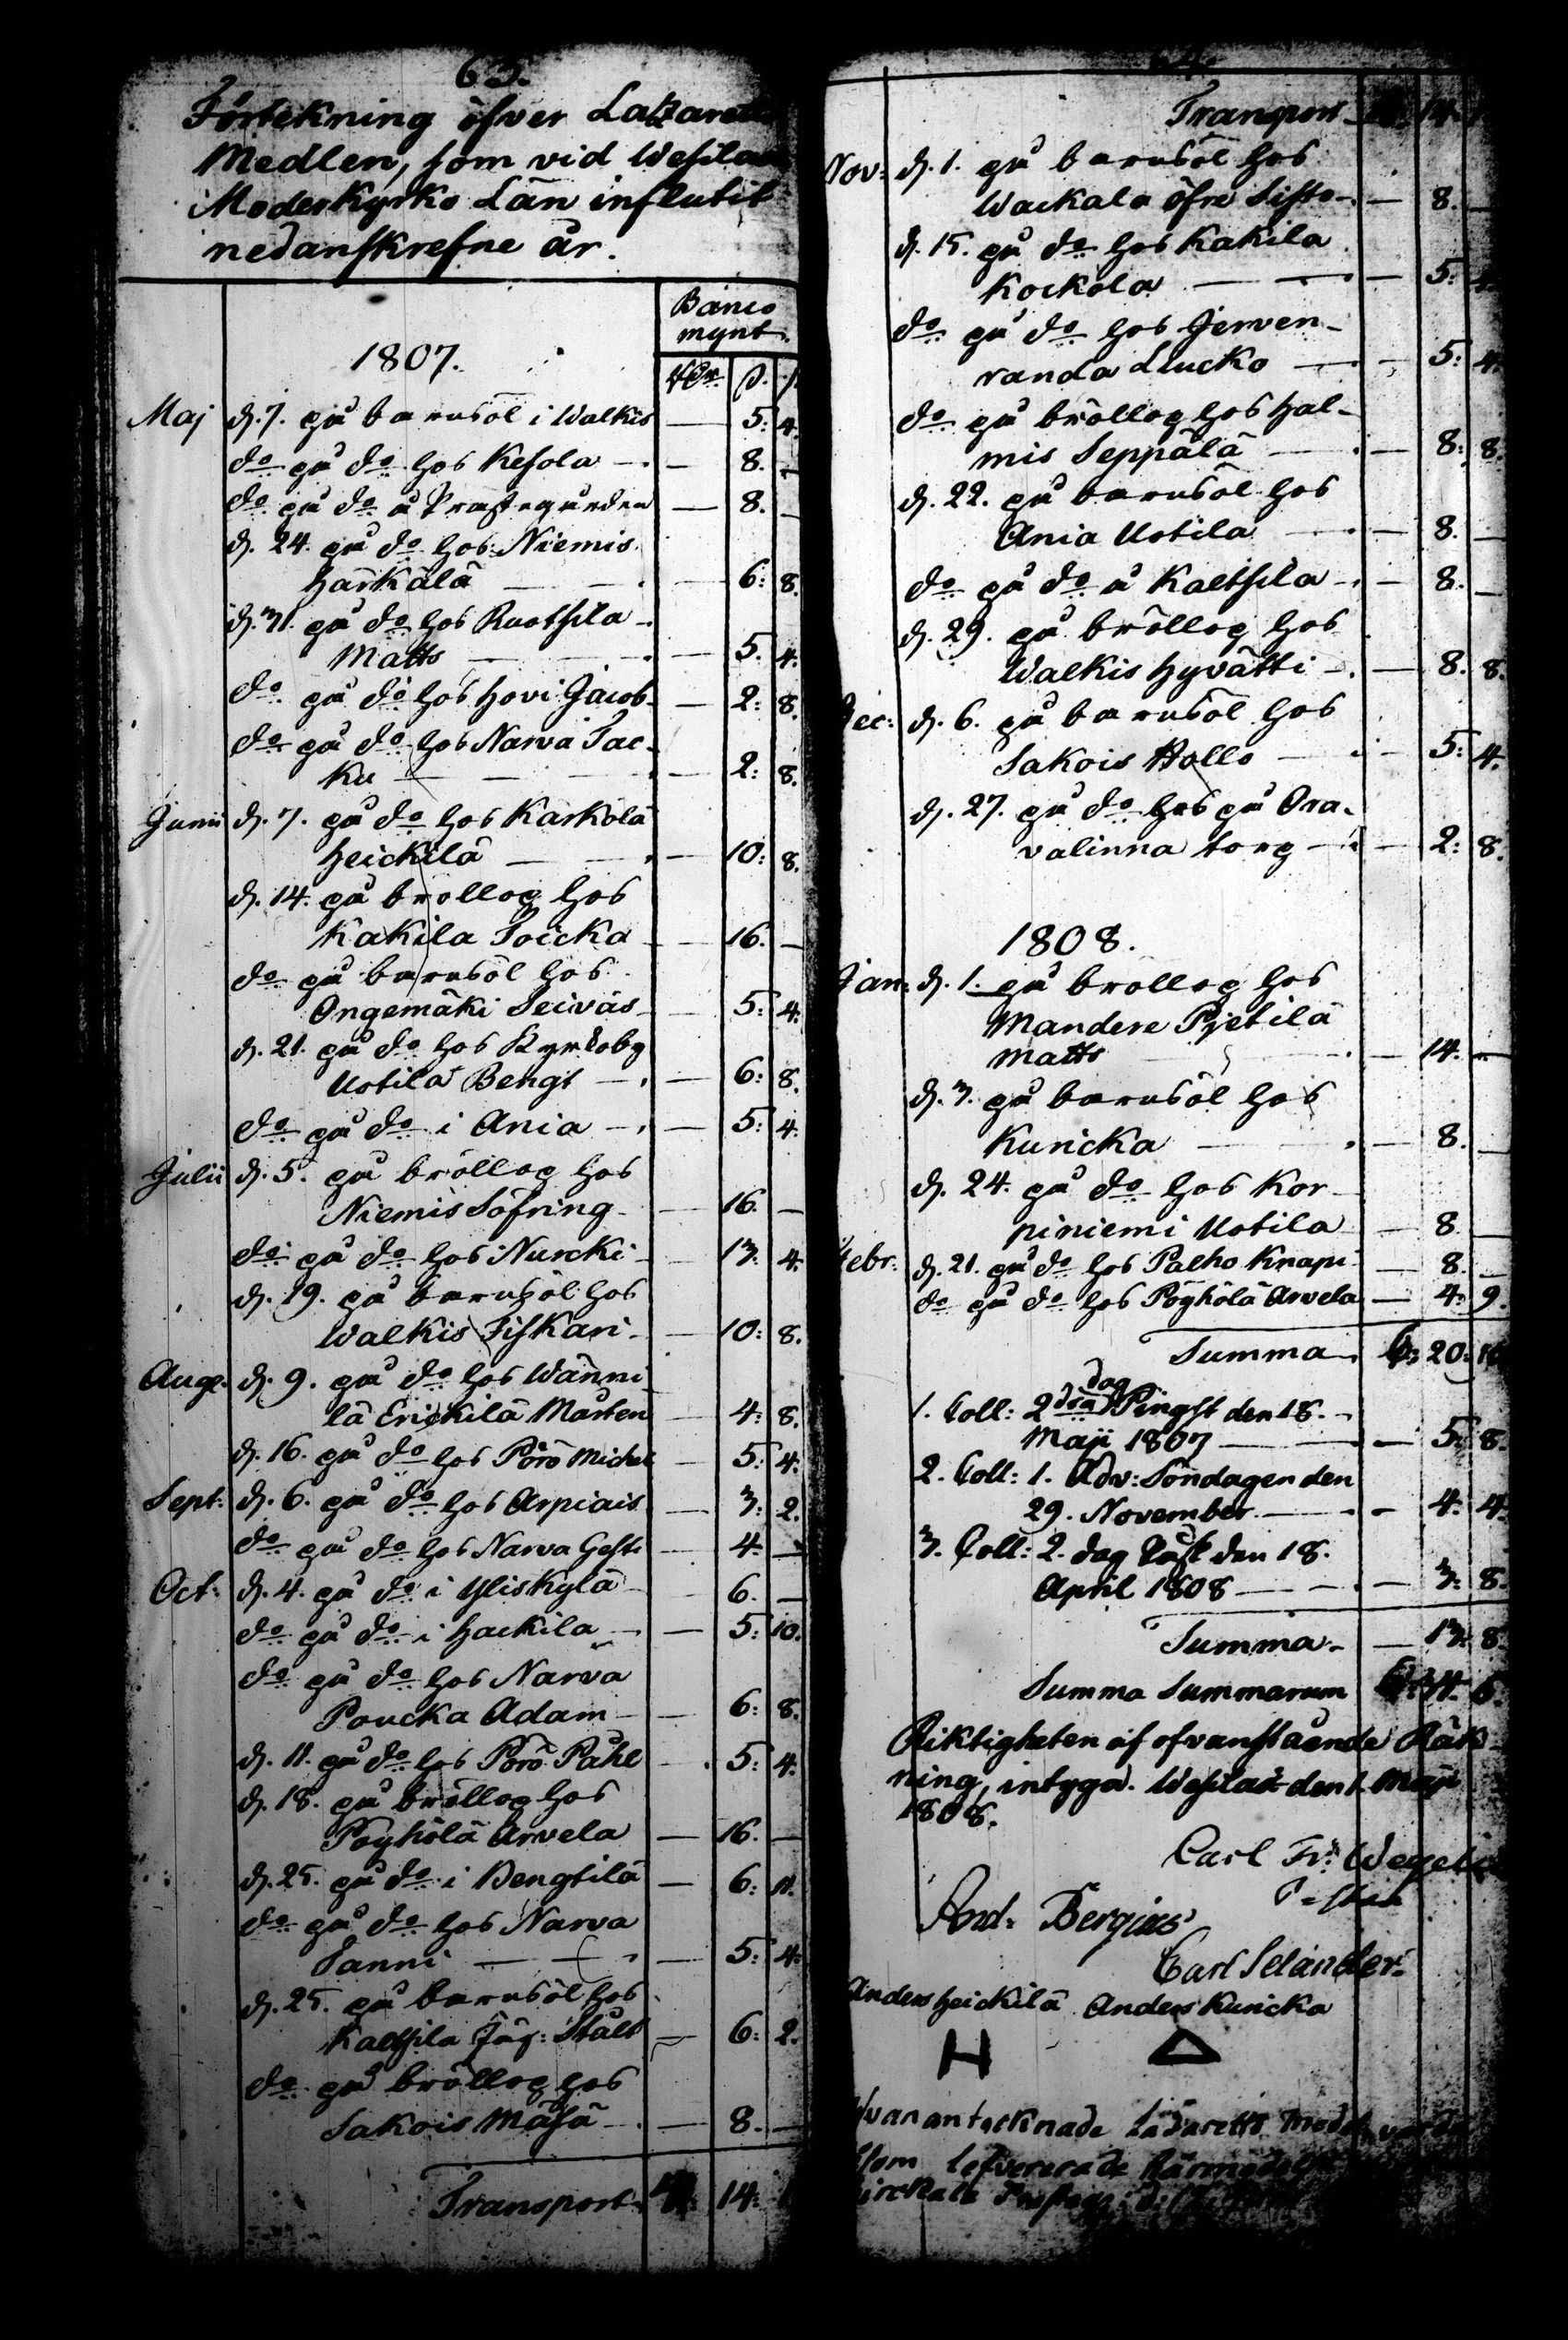 63.
Förtekning öfver Lazaretts
Medlen, som vid Wesilax
Moderkyrko Län influtit
nedanskrefne år.
Banco
mynt.
1807. Rdr ß. r.
Maj d. 7. på barnsöl i Walkis — 5: 4.
do på do hos Kesola — 8. —
do på do å Prästegården — 8. —
d. 24. på do hos Niemis
Härkälä — 6: 8.
d. 31. på do hos Ruotsila
Matts — 5. 4.
do på do hos Hovi Jacob — 2: 8.
do på do hos Narva Jac-
ku — 2: 8.
Junii d. 7. på do hos Karkola
Heickilä — 10: 8.
d. 14. på bröllop hos
Kakila Toicka — 16. —
do på barnsöl hos
Ongemäki Seiväs — 5: 4.
d. 21. på do hos Kyrkoby
Uotila Bengt — 6: 8.
do på do i Ania — 5: 4.
Julii d. 5. på bröllop hos
Niemis Söfring — 16. —
do på do hos Nurcki — 13: 4.
d. 19. på barnsöl hos
Walkis Fiskari — 10: 8.
Aug. d. 9. på do hos Wänni
lä Erickilä Mårten — 4: 8.
d. 16. på do hos Pörö Michel — 5: 4.
Sept: d. 6. på do hos Arpiais — 3: 2.
do på do hos Narva Gesti — 4. —
Oct: d. 4. på do i Yliskylä — 6. —
do på do i Hackila — 5: 10.
do på do hos Narva
Poucka Adam — 6: 8.
d. 11. på do hos Pörö Påhl — 5: 4.
d. 18. på bröllop hos
Pöyhölä Arvela — 16. —
d. 25. på do i Bengtilä — 6: 11.
do på do hos Narva
Janni — 5: 4.
d. 25. på barnsöl hos
Kaltsila Jäg: Stålt — 6: 2.
do på bröllop hos
Sakois Mäsä — 8. —
Transport 14:
64.
Transport 14.
Nov: d. 1. på barnsöl hos
Wackala öfre Sisto — 8. —
d. 15. på do hos Kakila
Kockola — 5: 4.
do på do hos Jerven-
randa Llucko — 5: 4.
do på bröllop hos Hal-
mis Seppälä — 8: 8.
d. 22. på barnsöl hos
Ania Uotila — 8. —
do på do å Kaltsila — 8. —
d. 29. på bröllop hos
Walkis Hyvätti — 8. 8.
Dec: d. 6. på barnsöl hos
Sakois Hollo — 5: 4.
d. 27. på do hos på Ora-
valinna torp — 2: 8.
1808.
Jan: d. 1. på bröllop hos
Mandere Pjetilä
Matts — 14. —
d. 3. på barnsöl hos
Kuricka — 8. —
d. 24. på do hos Kor-
piniemi Uotila — 8. —
Febr: d. 21. på do hos Palho Knapi — 8. —
do på do hos Pöyhölä Arvela — 4: 9.
Summa 6: 20: 10
1. Coll: 2dra dag Pingst den 18.
Maji 1807 — 5: 8.
2. Coll: 1. Adv: Söndagen den
29. November — 4: 4.
3. Coll: 2. dag Påsk den 18.
April 1808 — 3: 8.
Summa — 13: 8.
Summa Summarum 6: 34. 6.
Riktigheten af ofvanstående Räk
ning, intyga. Wesilax den 1. Maji
1808.
Carl Fr: Wegelius
And: Bergius
Carl Selander.
Anders Heickilä Anders Kuricka
H Δ
antecknade Lazaretts Medel
lefvererade